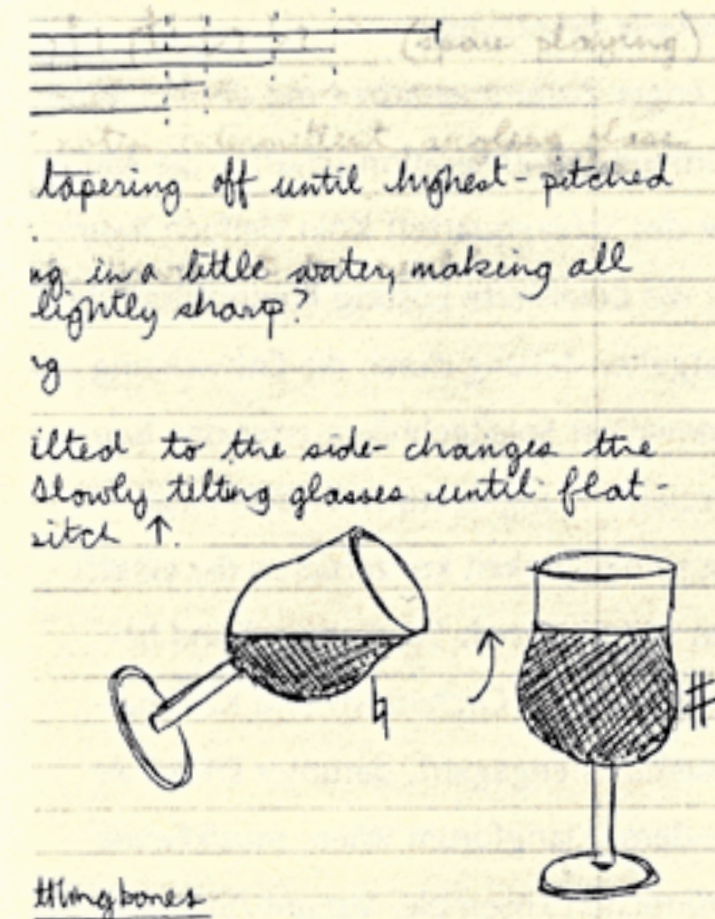 (spou playing)
tapering off until highest-pitched
ng in a little water, making all
lightly sharp?
g
ilted to the side- changes the
slowly telting glasses until flat-
pitch ↑.
♮
#
ttlingbones